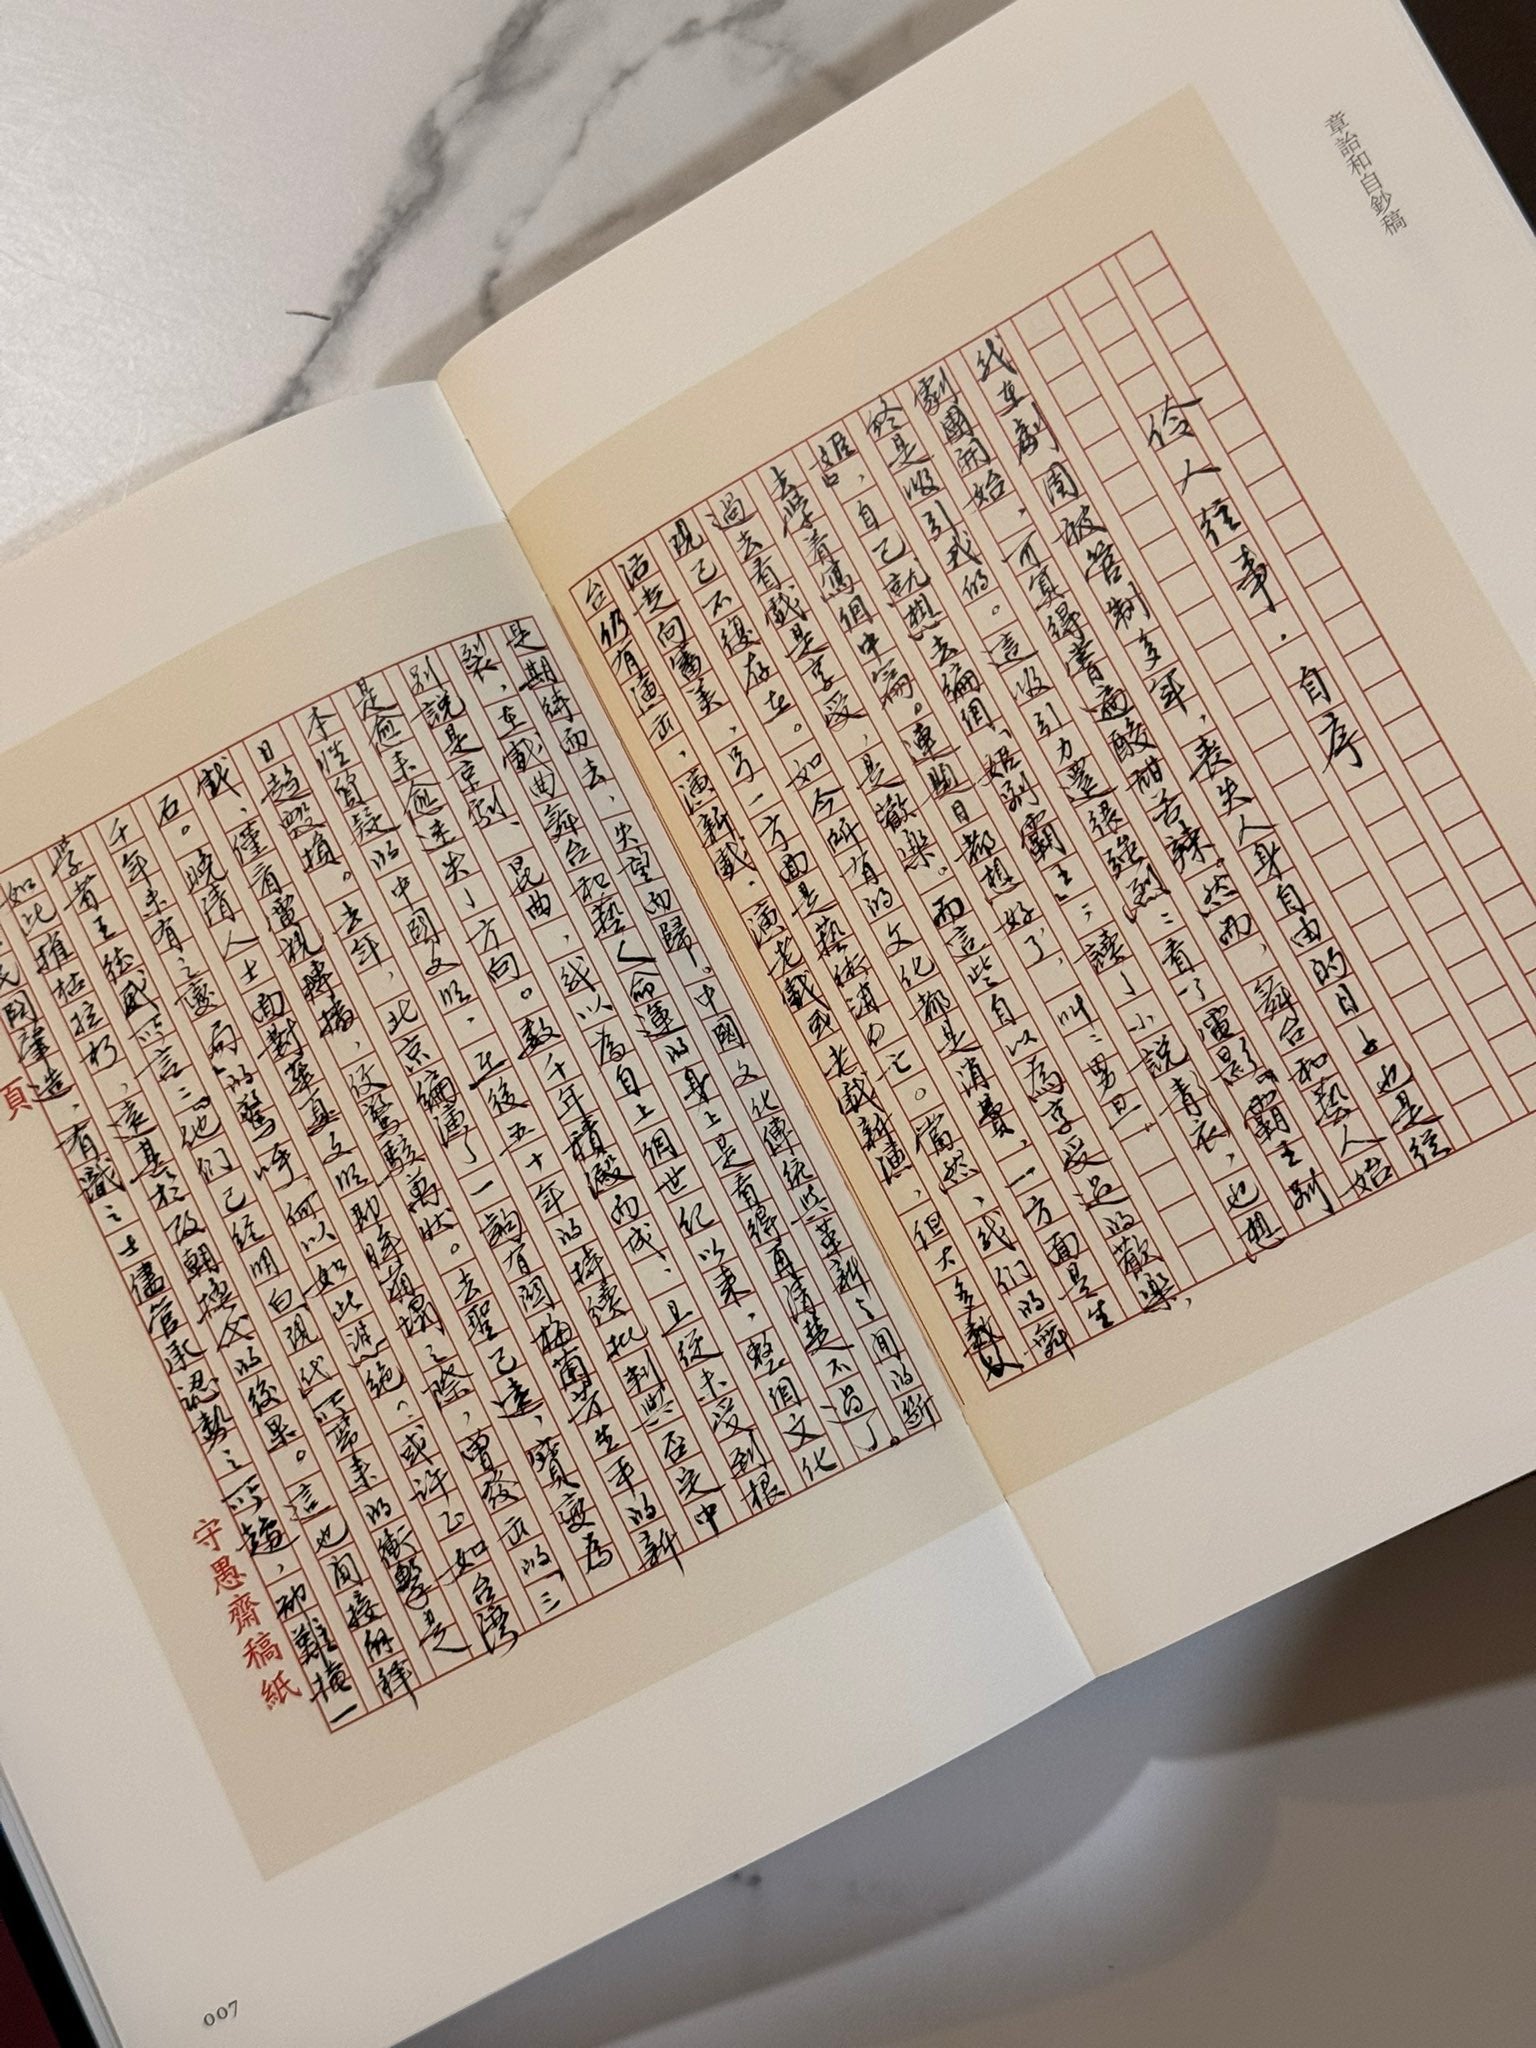 章詒和自鈔稿
伶人往事·自序
我在劇團被管制多年，喪失人身自由的日子也是從
劇團開始，可算得嘗遍酸甜苦辣。然而，舞台和藝人始
終是吸引我的。這吸引力豐張強烈：看了電影《霸王別
姬》，自己就想去編個《姬別霸王》；讀了小說《青衣》，也想
去學着寫個中篇。連題目都想好了，叫：《男旦》
過去看戲是享受，是歡樂。而這些自以為享受過的歡樂，
現已不復存在。如今所有的文化都是消費，一方面是生
活走向審美，另一方面是藝術消亡。當然，我們的舞
台仍有演出，演新戲、演老戲或老戲新演，但大多數人
是期待而去，失望而歸。中國文化傳統與革新之間的斷
裂，在戲曲舞台和藝人命運的身上是看得再清楚不過了。
別說是京劇、昆曲，我以為自上個世紀以來，整個文化
是愈來愈迷失了方向。數千年積澱而成、且從未受到根
本性質疑的中國文明，在後五十年的持續批判與否定中
日趨毀損。去年，北京編演了一齣有關梅蘭芳生平的新
戲，僅看電視轉播，便驚駭萬狀。去聖已遠，寶變為
石。晚清人士面對華夏文明即將崩塌之際，曾發出的「三
千年未有之變局」的驚呼，何以如此淒絕？或許正如台灣
學者王德威所言：「他們已經明白現代所帶來的衝擊是
如此摧枯拉朽，遠甚於改朝換代的後果。這也間接解釋
民國肇造，有識之士儘管承認勢之所趨，却難掩一
頁
守愚齋稿紙
007